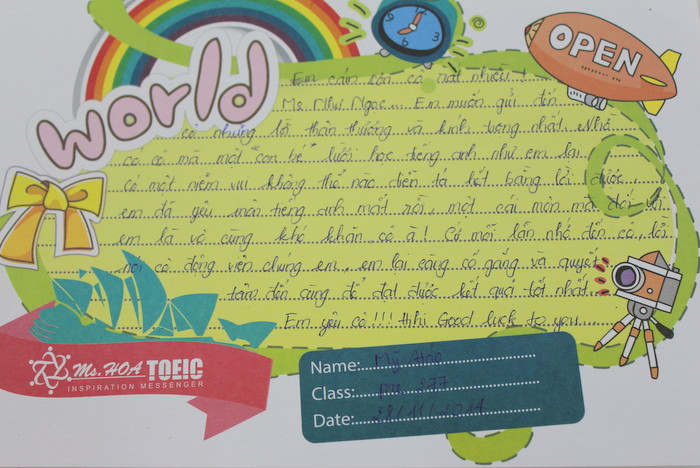 World
OPEN
Em cảm ơn cô rất nhiều!
Ms Như Ngọc... Em muốn gửi đến
cô những lời thân thương và kính trọng nhất. Nhờ
có cô mà một "con bé" lười học tiếng anh như em lại
có một niềm vui không thể nào diễn tả hết bằng lời được,
em đã yêu môn tiếng anh mất rồi, một cái môn mà đối với
em là vô cùng khó khăn cô ạ! Cứ mỗi lần nhớ đến cô, lời
nói cô động viên chúng em, em lại càng cố gắng và quyết
tâm đến cùng để đạt được kết quả tốt nhất...
Em yêu cô!!! Hihi Good luck to you...
Ms. HOA TOEIC
INSPIRATION MESSENGER
Name: Mỹ Hảo
Class: Pre 277
Date: 28/11/2014